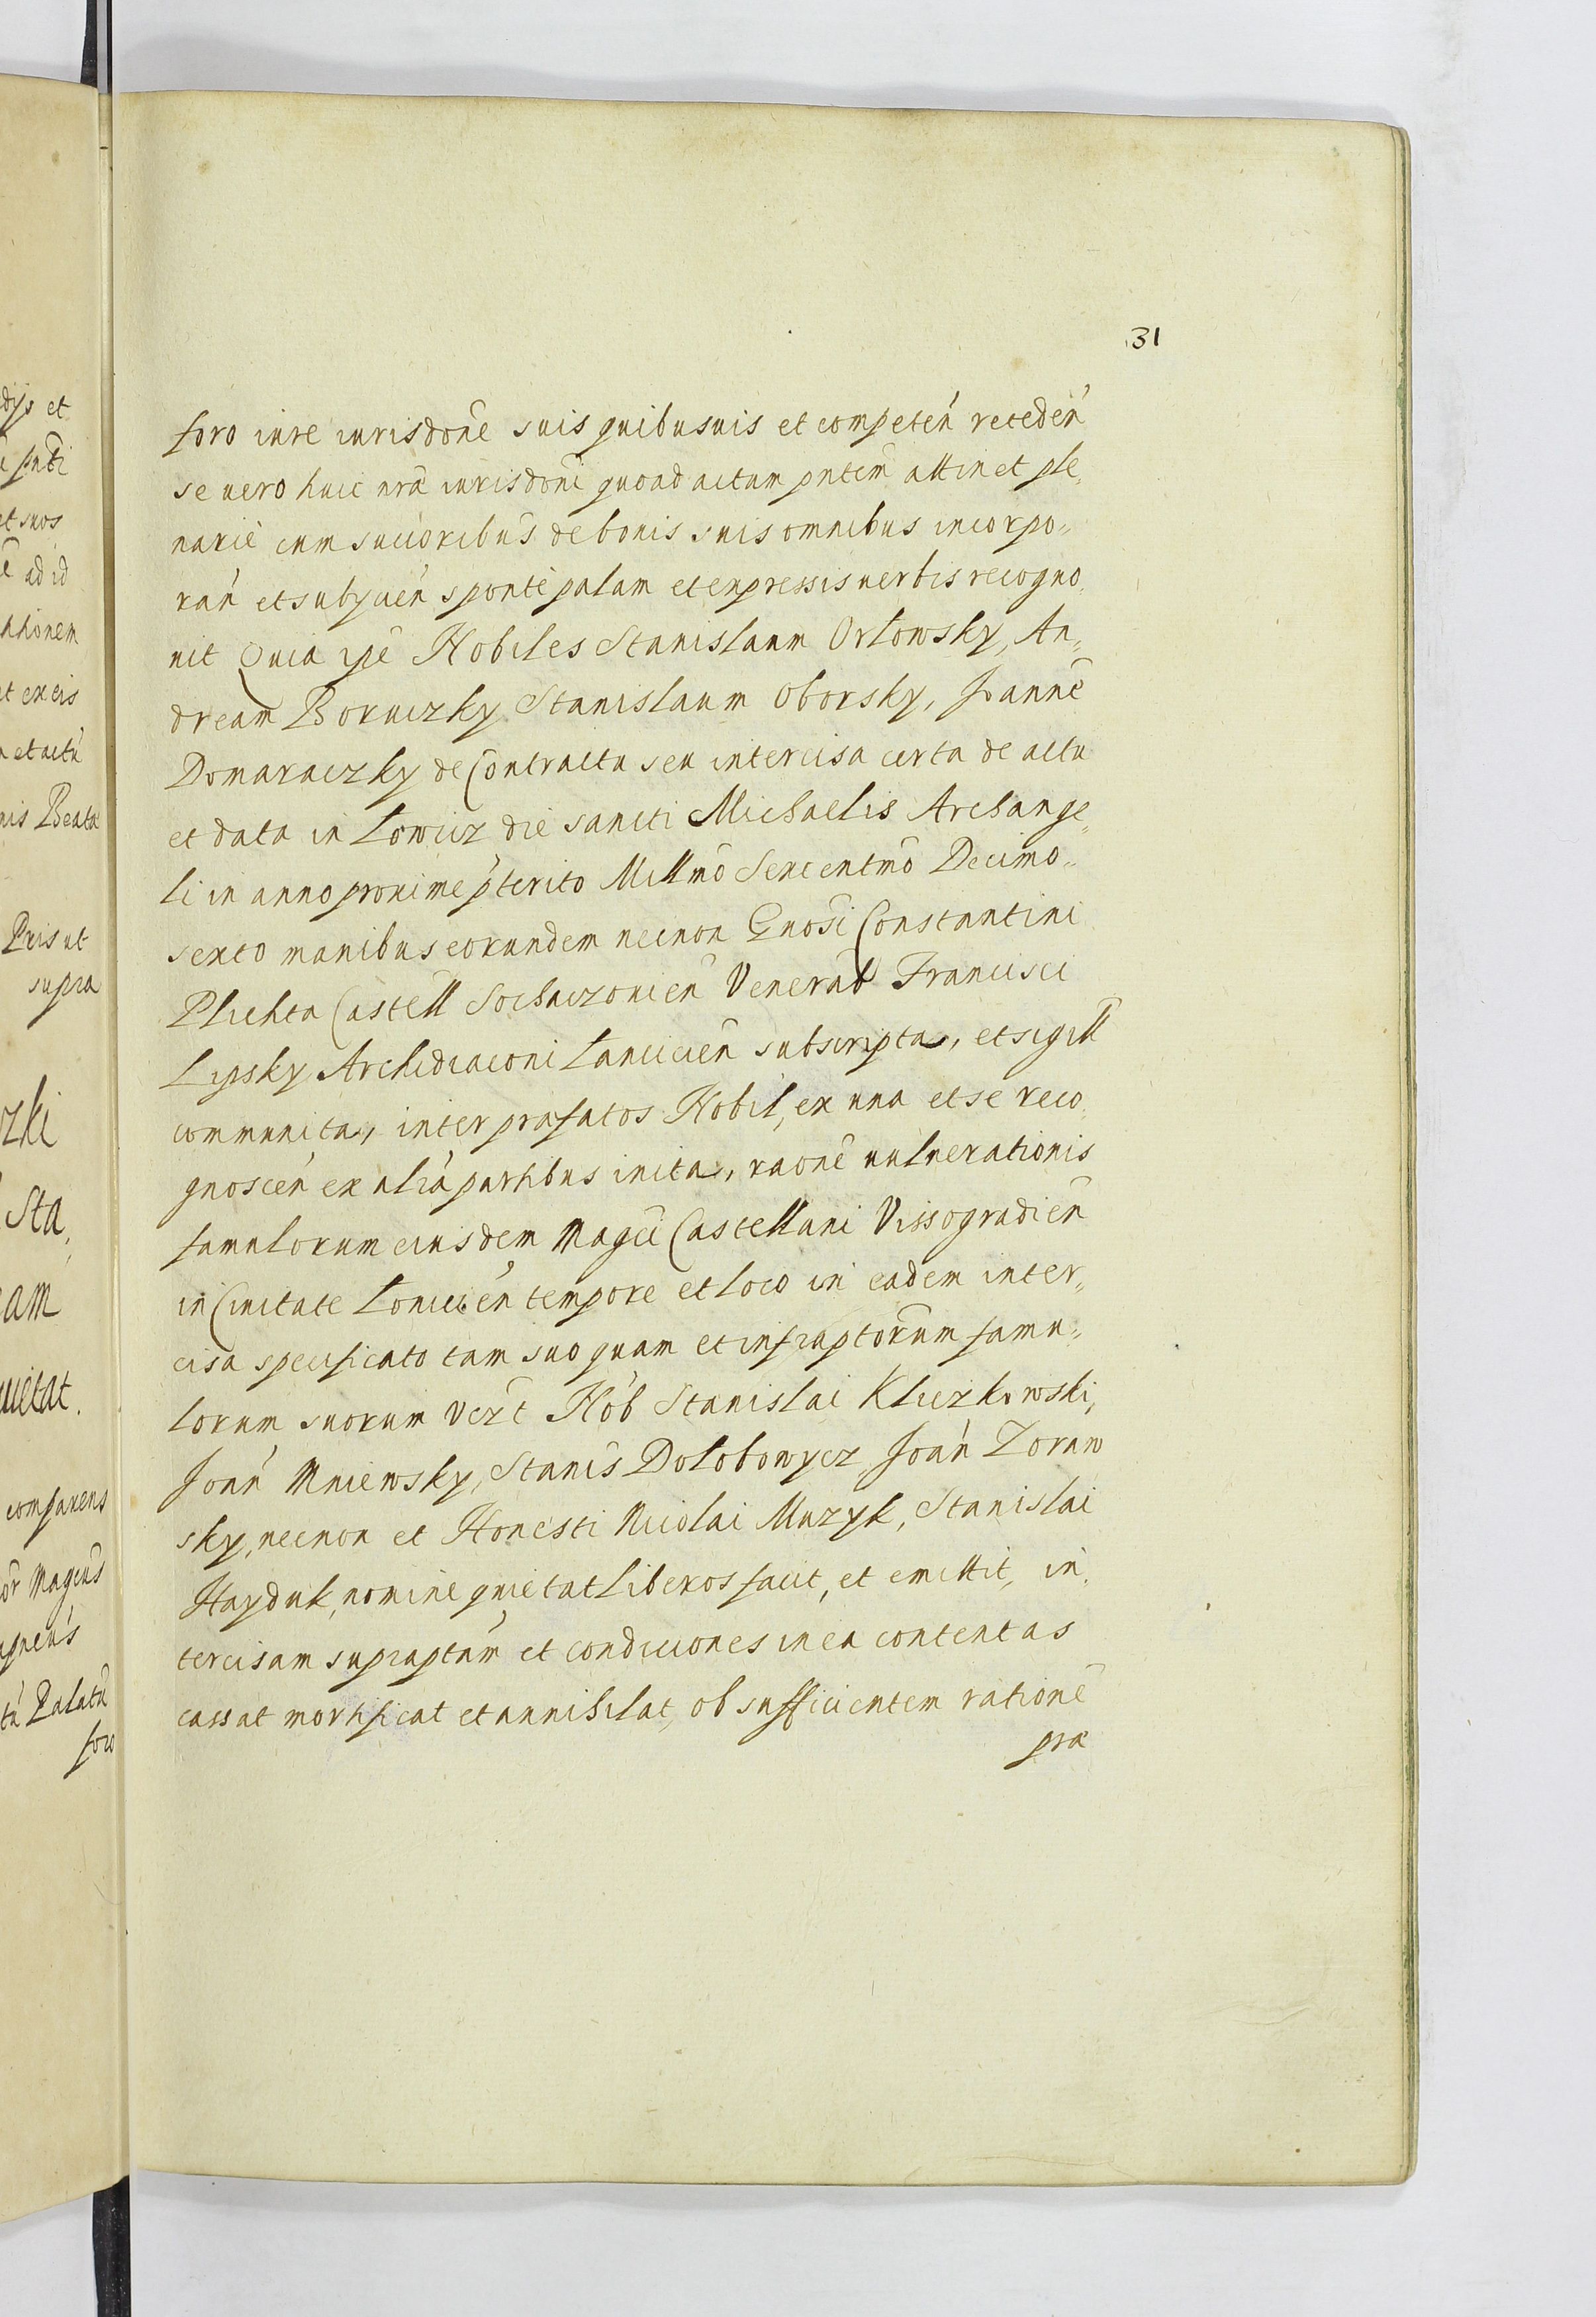 31
foro iure iurisdone suis quibusuis et competen receden
se uero huic nrae iurisdoni quoad actum pntem attinet ple„
narie cum succoribus de bonis suis omnibus incorpo„
ran et subycien sponte palam et expressis uerbis recogno„
uit Quia ipse Nobiles Stanislaum Orlowsky, An„
dream Boruczky Stanislaum Oborsky, Joanne
Domaraczky de Contractu seu intercisa certa de actu
et data in Lowicz die sancti Michaelis Archange„
li in anno proxime pterito Millmo Sexcentmo Decimo„
sexto manibus eorundem necnon Gnosi Constantini
Plichta Castell Sochaczouien Venerab Francisci
Lipsky Archidiaconi Lancicien subscripta, et sigill
communita, inter praefatos Nobil, ex una et se reco„
gnoscen ex alia partibus inita, raone uulnerationis
famulorum eiusdem Magci Castellani Vissogradien
in Ciuitate Louicien tempore et loco in eadem inter„
cisa specificato tam suo quam et infraptorum famu„
lorum suorum Vczt Nob Stanislai Kliczkowski,
Joan Mniewsky, Stanis Dolobowycz Joan Zoraw
sky, necnon et Honesti Nicolai Muzyk, Stanislai
Hayduk, nomine quietat Liberos facit, et emittit, in„
tercisam supraptam et condiciones in ea contentas
cassat mortificat et annihilat, ob sufficientem ratione
prae
dijs et
pnti
et suos
ad id
et ex eis
et actu
nis Beata
Pris ut
supra
zki
Sta„
am
uietat.
comparens
or Magcus
Palatu
foro